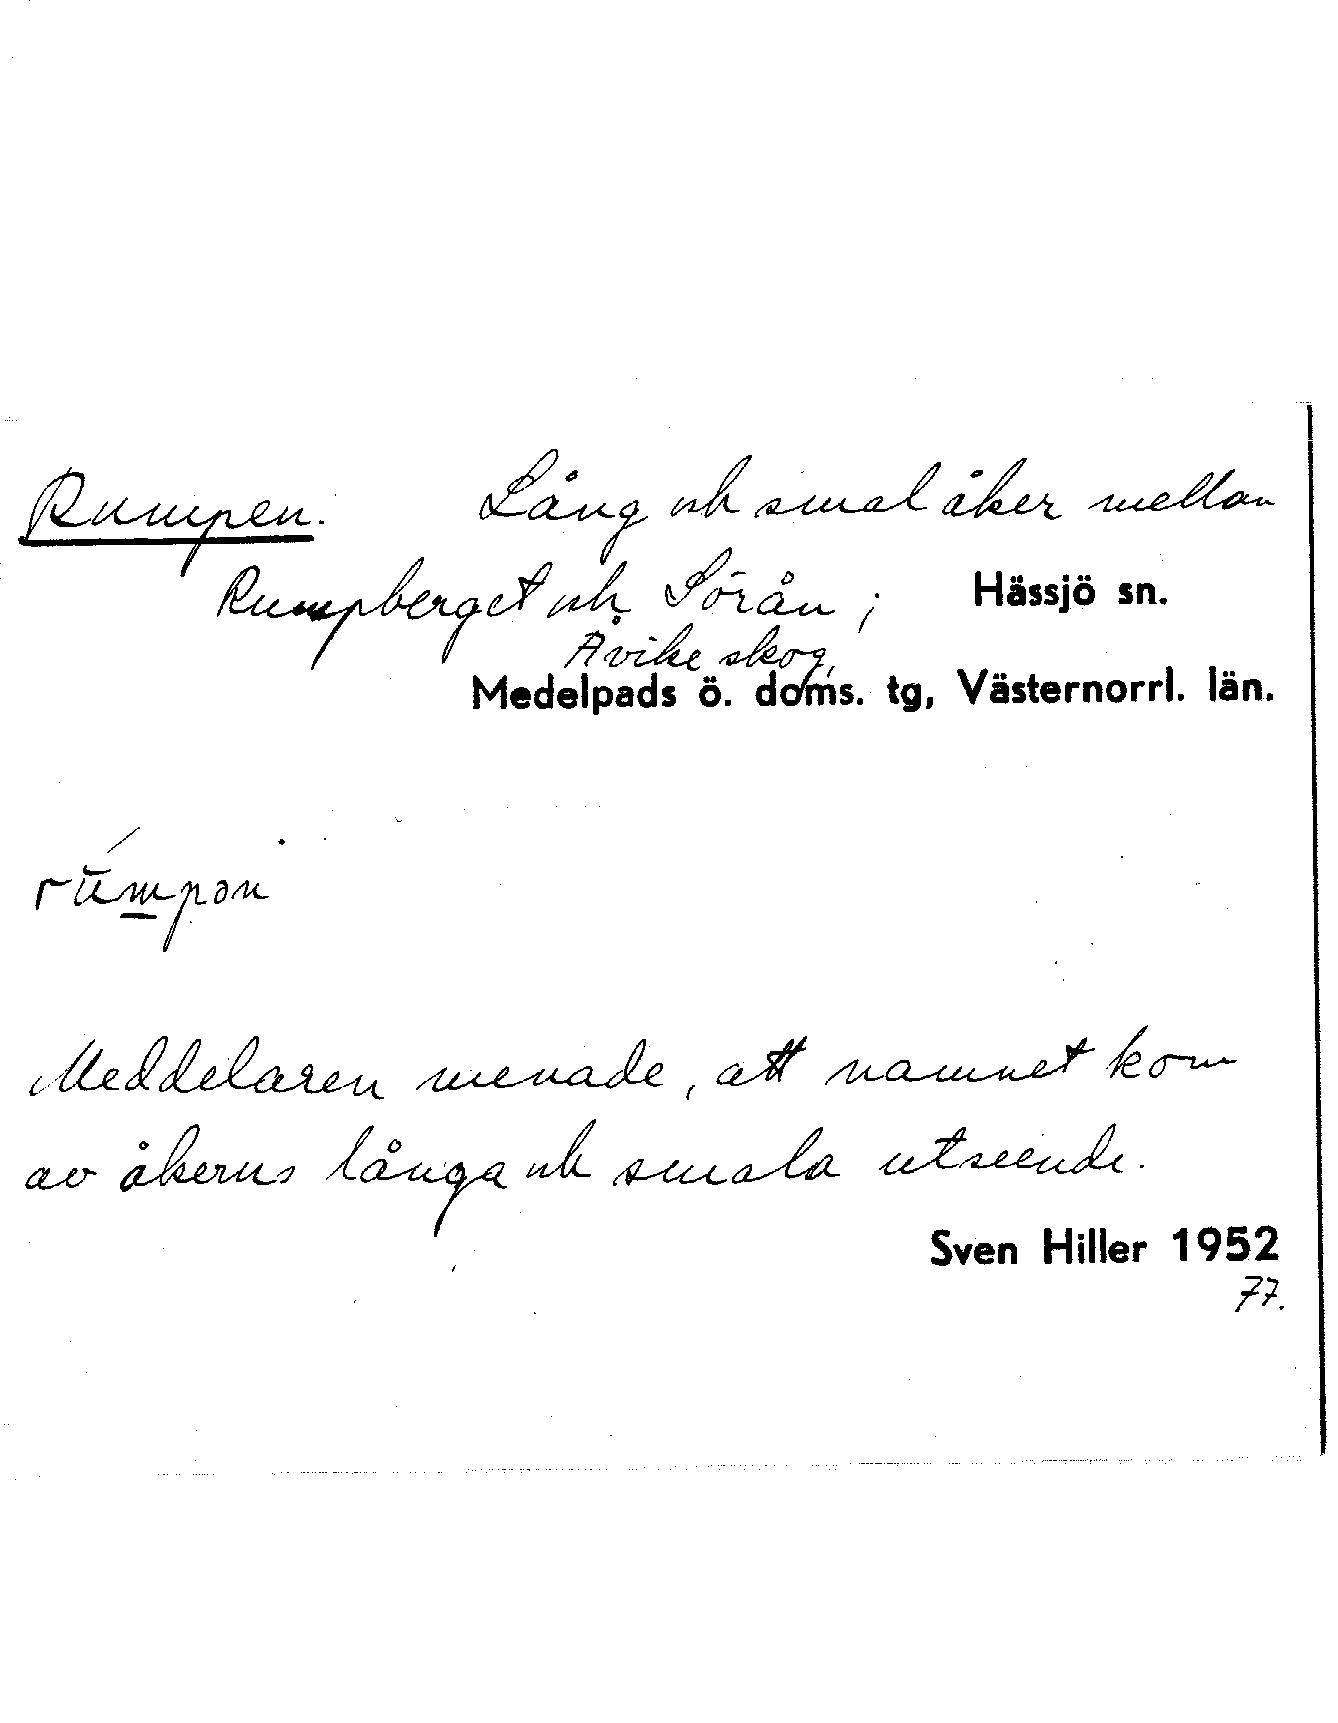 Rumpen. Lång och smal åker mellan
Rumpberget och Sörån; Hässjö sn.
Åvike skog,
Medelpads ö. doms. tg, Västernorrl. län.
rŭmpən
Meddelaren menade, att namnet kom
av åkerns långa och smala utseende.
Sven Hiller 1952
77.